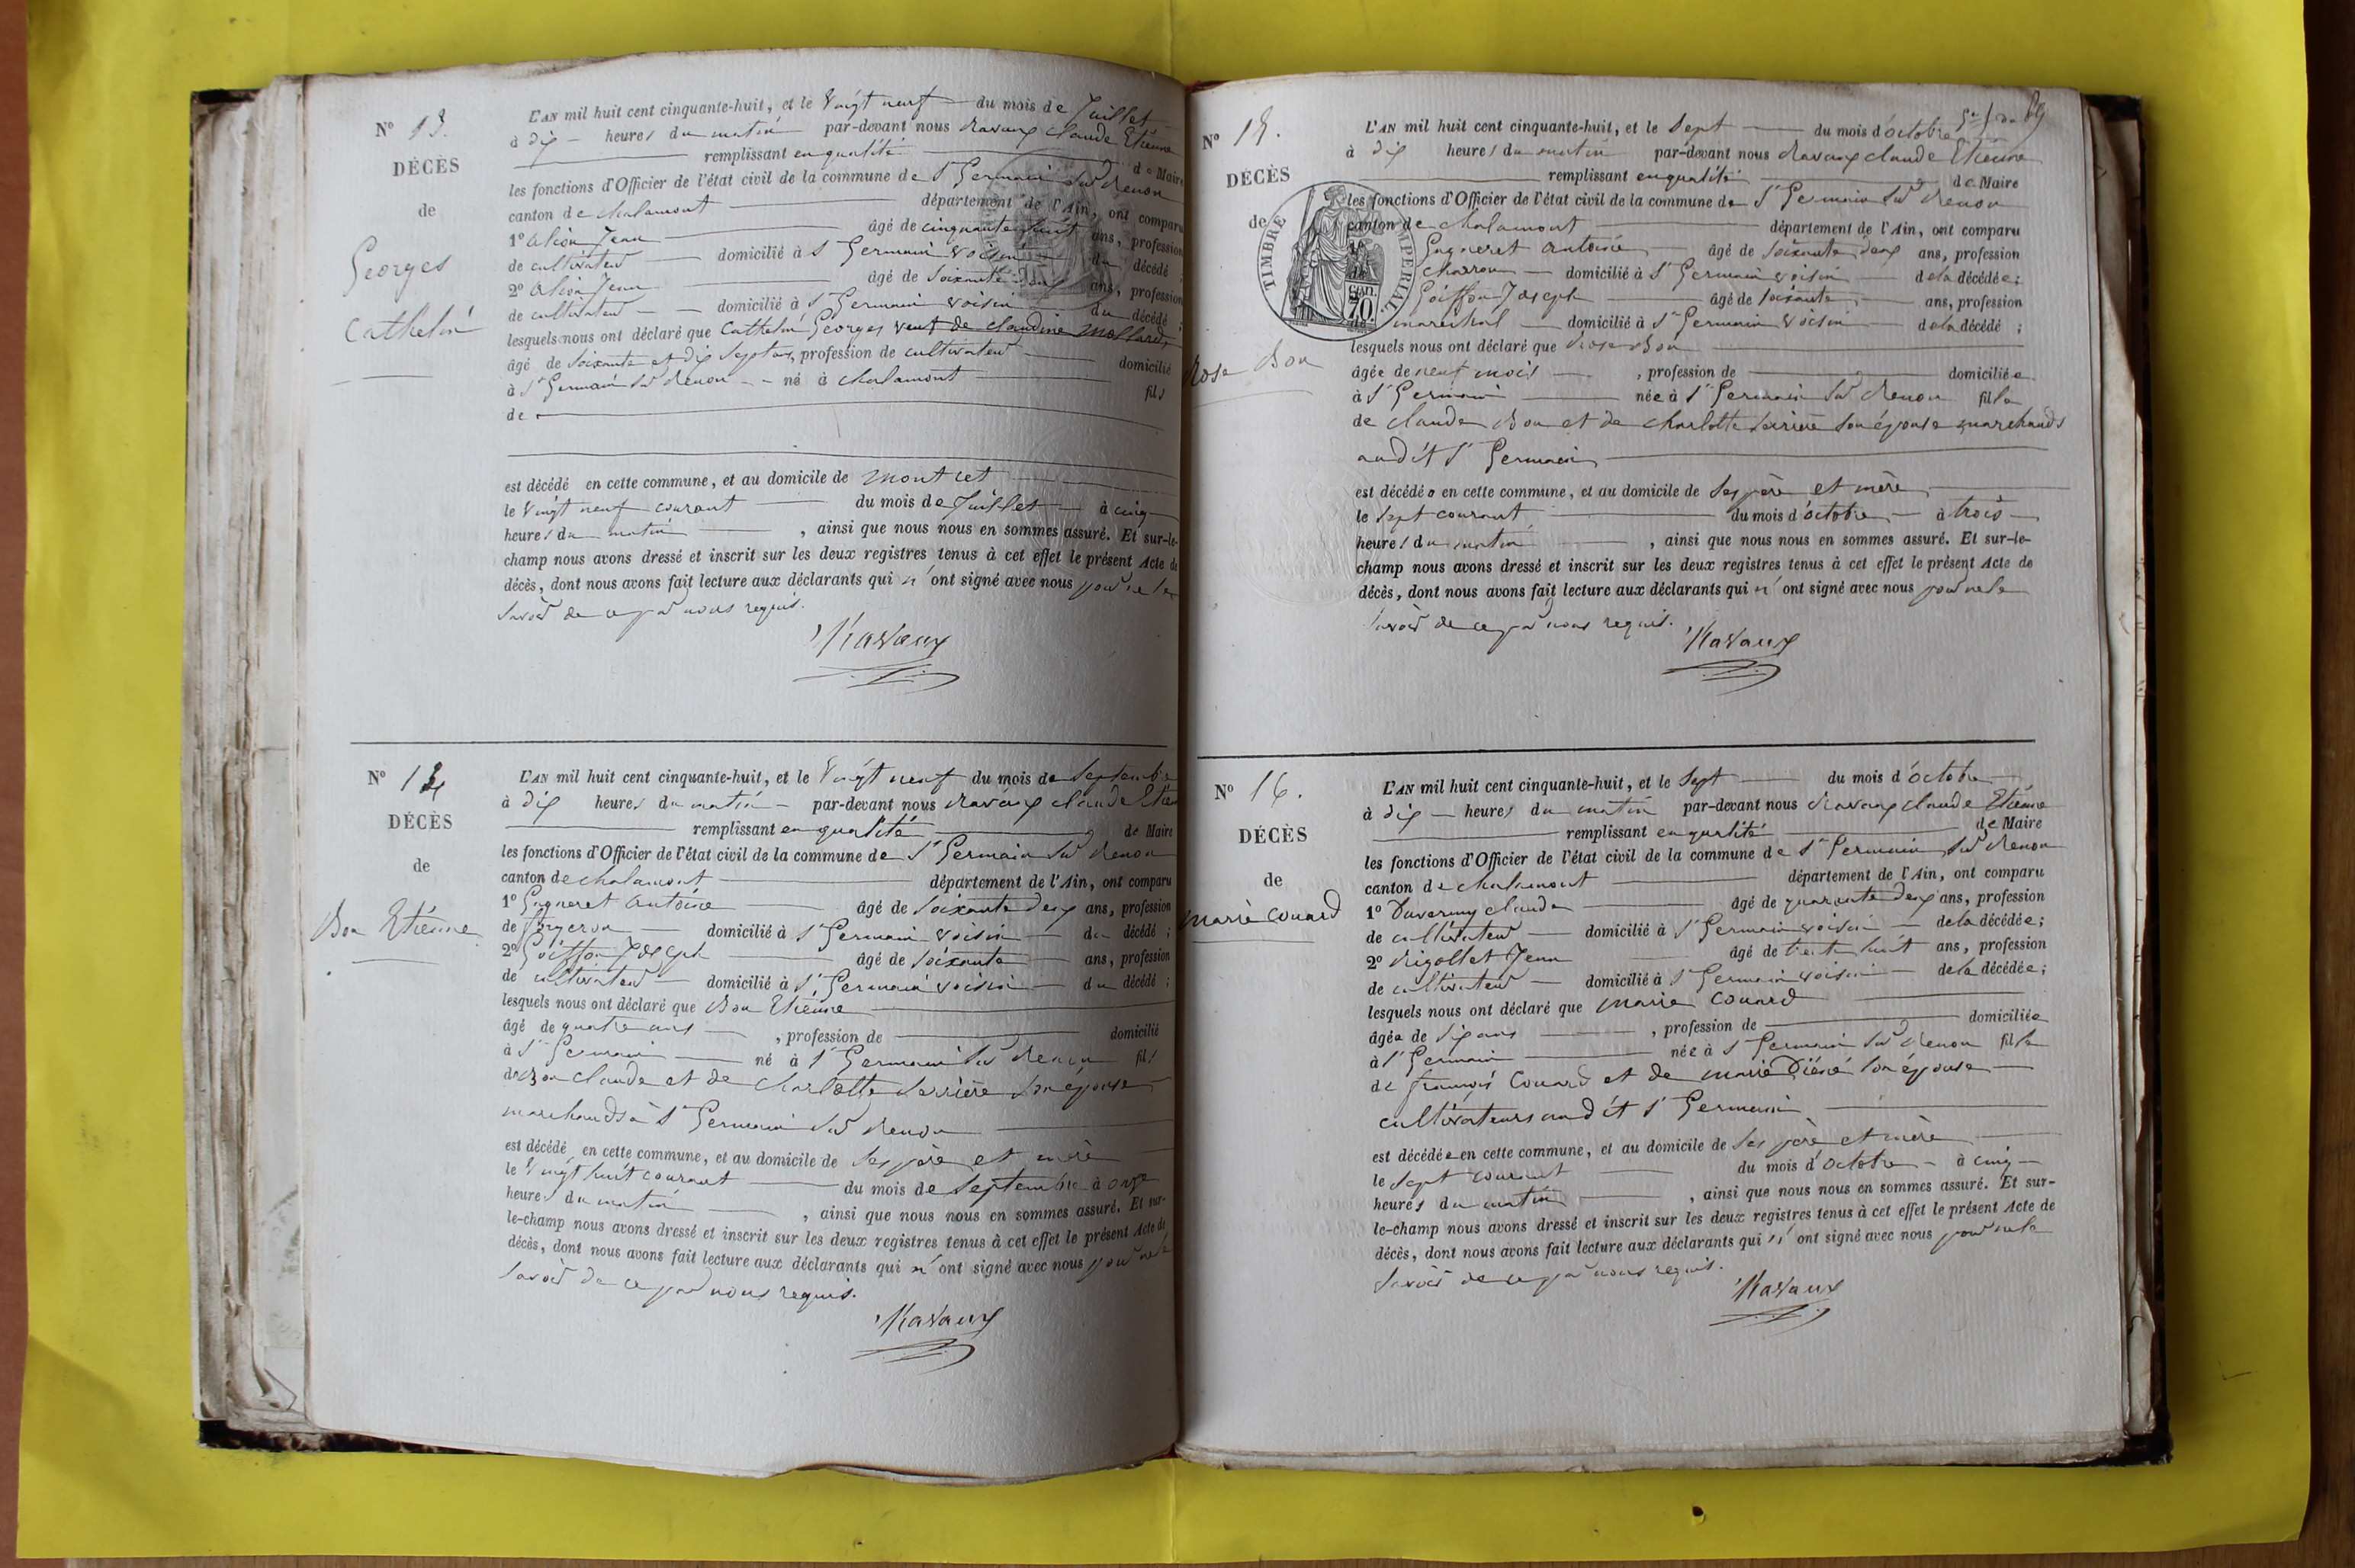 N° 13.
DÉCÈS
de
Georges
Cathelin
L'AN mil huit cent cinquante-huit, et le Vingt neuf du mois de Juillet
à dix heures du matin par-devant nous Ravaux Claude Etienne
remplissant en qualité de Maire
les fonctions d'Officier de l'état civil de la commune de St Germain sur Renon
canton de chalamont département de l'Ain, ont comparu
1° Alion Jean âgé de cinquante huit ans, profession
de cultivateur domicilié à St Germain voisin du décédé ;
2° Alion Jean âgé de soixante ans, profession
de cultivateur domicilié à St Germain voisin du décédé ;
lesquels nous ont déclaré que Cathelin Georges veuf de claudine mollard
âgé de soixante et dix sept ans, profession de cultivateur domicilié
à St Germain sur Renon né à chalamont fils
de
est décédé en cette commune, et au domicile de montcet
le Vingt neuf courant du mois de Juillet à cinq
heures du matin, ainsi que nous nous en sommes assuré. Et sur-le-
champ nous avons dressé et inscrit sur les deux registres tenus à cet effet le présent Acte de
décès, dont nous avons fait lecture aux déclarants qui n'ont signé avec nous pour ne le
savoir de ce par nous requis.
Ravaux
N° 14
DÉCÈS
de
Bon Etienne
L'AN mil huit cent cinquante-huit, et le Vingt neuf du mois de Septembre
à dix heures du matin par-devant nous Ravaux Claude Etien
remplissant en qualité de Maire
les fonctions d'Officier de l'état civil de la commune de St Germain sur Renon
canton de chalamont département de l'Ain, ont comparu
1° Gagneret Antoine âgé de soixante deux ans, profession
de forgeron domicilié à St Germain voisin du décédé ;
2° Goiffon Joseph âgé de soixante ans, profession
de cultivateur domicilié à St Germain voisin du décédé ;
lesquels nous ont déclaré que Bon Etienne
âgé de quatre ans, profession de domicilié
à St Germain né à St Germain sur Renon fils
de Bon claude et de charlotte Perrière son épouse
marchands à St Germain sur Renon
est décédé en cette commune, et au domicile de ses père et mère
le Vingt huit courant du mois de Septembre à onze
heures du matin, ainsi que nous nous en sommes assuré. Et sur-
le-champ nous avons dressé et inscrit sur les deux registres tenus à cet effet le présent Acte de
décès, dont nous avons fait lecture aux déclarants qui n'ont signé avec nous pour ne le
savoir de ce par nous requis.
Ravaux
N° 15.
DÉCÈS
de
Rose Bon
TIMBRE IMPERIAL
70
L'AN mil huit cent cinquante-huit, et le Sept du mois d'octobre
à dix heures du matin par-devant nous Ravaux claude Etienne
remplissant en qualité de Maire
les fonctions d'Officier de l'état civil de la commune de St Germain sur Renon
canton de chalamont département de l'Ain, ont comparu
Gagneret antoine âgé de soixante deux ans, profession
charron domicilié à St Germain voisin de la décédée ;
Goiffon Joseph âgé de soixante ans, profession
maréchal domicilié à St Germain voisin de la décédé ;
lesquels nous ont déclaré que Rose Bon
âgée de neuf mois, profession de domiciliée
à St Germain née à St Germain sur Renon fille
de claude Bon et de charlotte Perrière son épouse marchands
audit St Germain
est décédée en cette commune, et au domicile de ses père et mère
le sept courant du mois d'octobre à trois
heures du matin, ainsi que nous nous en sommes assuré. Et sur-le-
champ nous avons dressé et inscrit sur les deux registres tenus à cet effet le présent Acte de
décès, dont nous avons fait lecture aux déclarants qui n'ont signé avec nous pour ne le
savoir de ce par nous requis.
Ravaux
N° 16.
DÉCÈS
de
marie Couard
L'AN mil huit cent cinquante-huit, et le Sept du mois d'octobre
à dix heures du matin par-devant nous Ravaux claude Etienne
remplissant en qualité de Maire
les fonctions d'Officier de l'état civil de la commune de St Germain sur Renon
canton de chalamont département de l'Ain, ont comparu
1° Duverny claude âgé de quarante deux ans, profession
de cultivateur domicilié à St Germain voisin de la décédée ;
2° Rigollet Jean âgé de trente huit ans, profession
de cultivateur domicilié à St Germain voisin de la décédée ;
lesquels nous ont déclaré que marie Couard
âgée de dix ans, profession de domiciliée
à St Germain née à St Germain sur Renon fille
de françois Couard et de marie son épouse
cultivateurs audit St Germain
est décédée en cette commune, et au domicile de ses père et mère
le Sept courant du mois d'octobre à cinq
heures du matin, ainsi que nous nous en sommes assuré. Et sur-
le-champ nous avons dressé et inscrit sur les deux registres tenus à cet effet le présent Acte de
décès, dont nous avons fait lecture aux déclarants qui n'ont signé avec nous pour ne le
savoir de ce par nous requis.
Ravaux